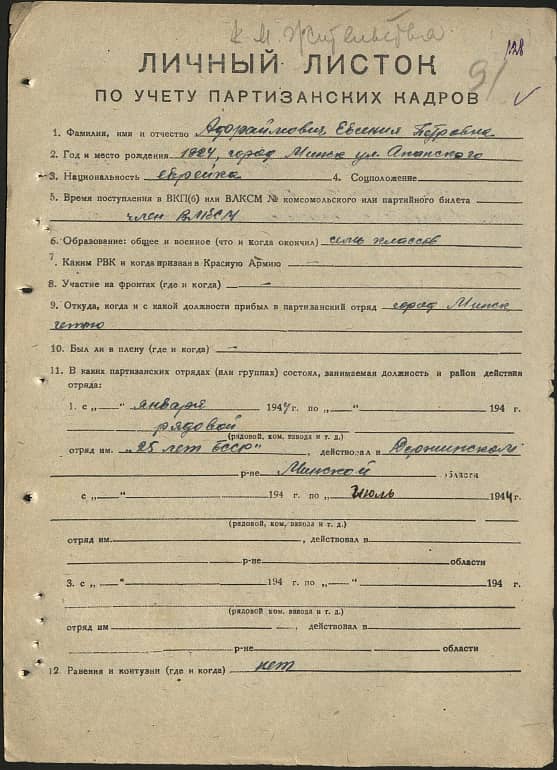 К м. жительства
128
91
ЛИЧНЫЙ ЛИСТОК
ПО УЧЕТУ ПАРТИЗАНСКИХ КАДРОВ
1. Фамилия, имя и отчество Адраймович Евгения Петровна
2. Год и место рождения 1924, город Минск ул. Апанского
3. Национальность еврейка 4. Соцположение
5. Время поступления в ВКП(б) или ВЛКСМ № комсомольского или партийного билета
член ВЛКСМ
6. Образование: общее и военное (что и когда окончил) семь классов
7. Каким РВК и когда призван в Красную Армию —
8. Участие на фронтах (где и когда) —
9. Откуда, когда и с какой должности прибыл в партизанский отряд город Минск
гетто
10. Был ли в плену (где и когда) —
11. В каких партизанских отрядах (или группах) состоял, занимаемая должность и район действия
отряда:
1. с „—“ января 1944 г. по „—“ 194 г.
рядовой
(рядовой, ком. взвода и т. д.)
отряд им. „25 лет БССР“, действовал в Дзержинском
р-не Минской области
с „—“ 194 г. по „—“ июль 1944 г.
(рядовой, ком. взвода и т. д.)
отряд им. , действовал в
р-не области
3. с „—“ 194 г. по „—“ 194 г.
(рядовой, ком. взвода и т. д.)
отряд им , действовал в
р-не области
12. Ранения и контузии (где и когда) нет